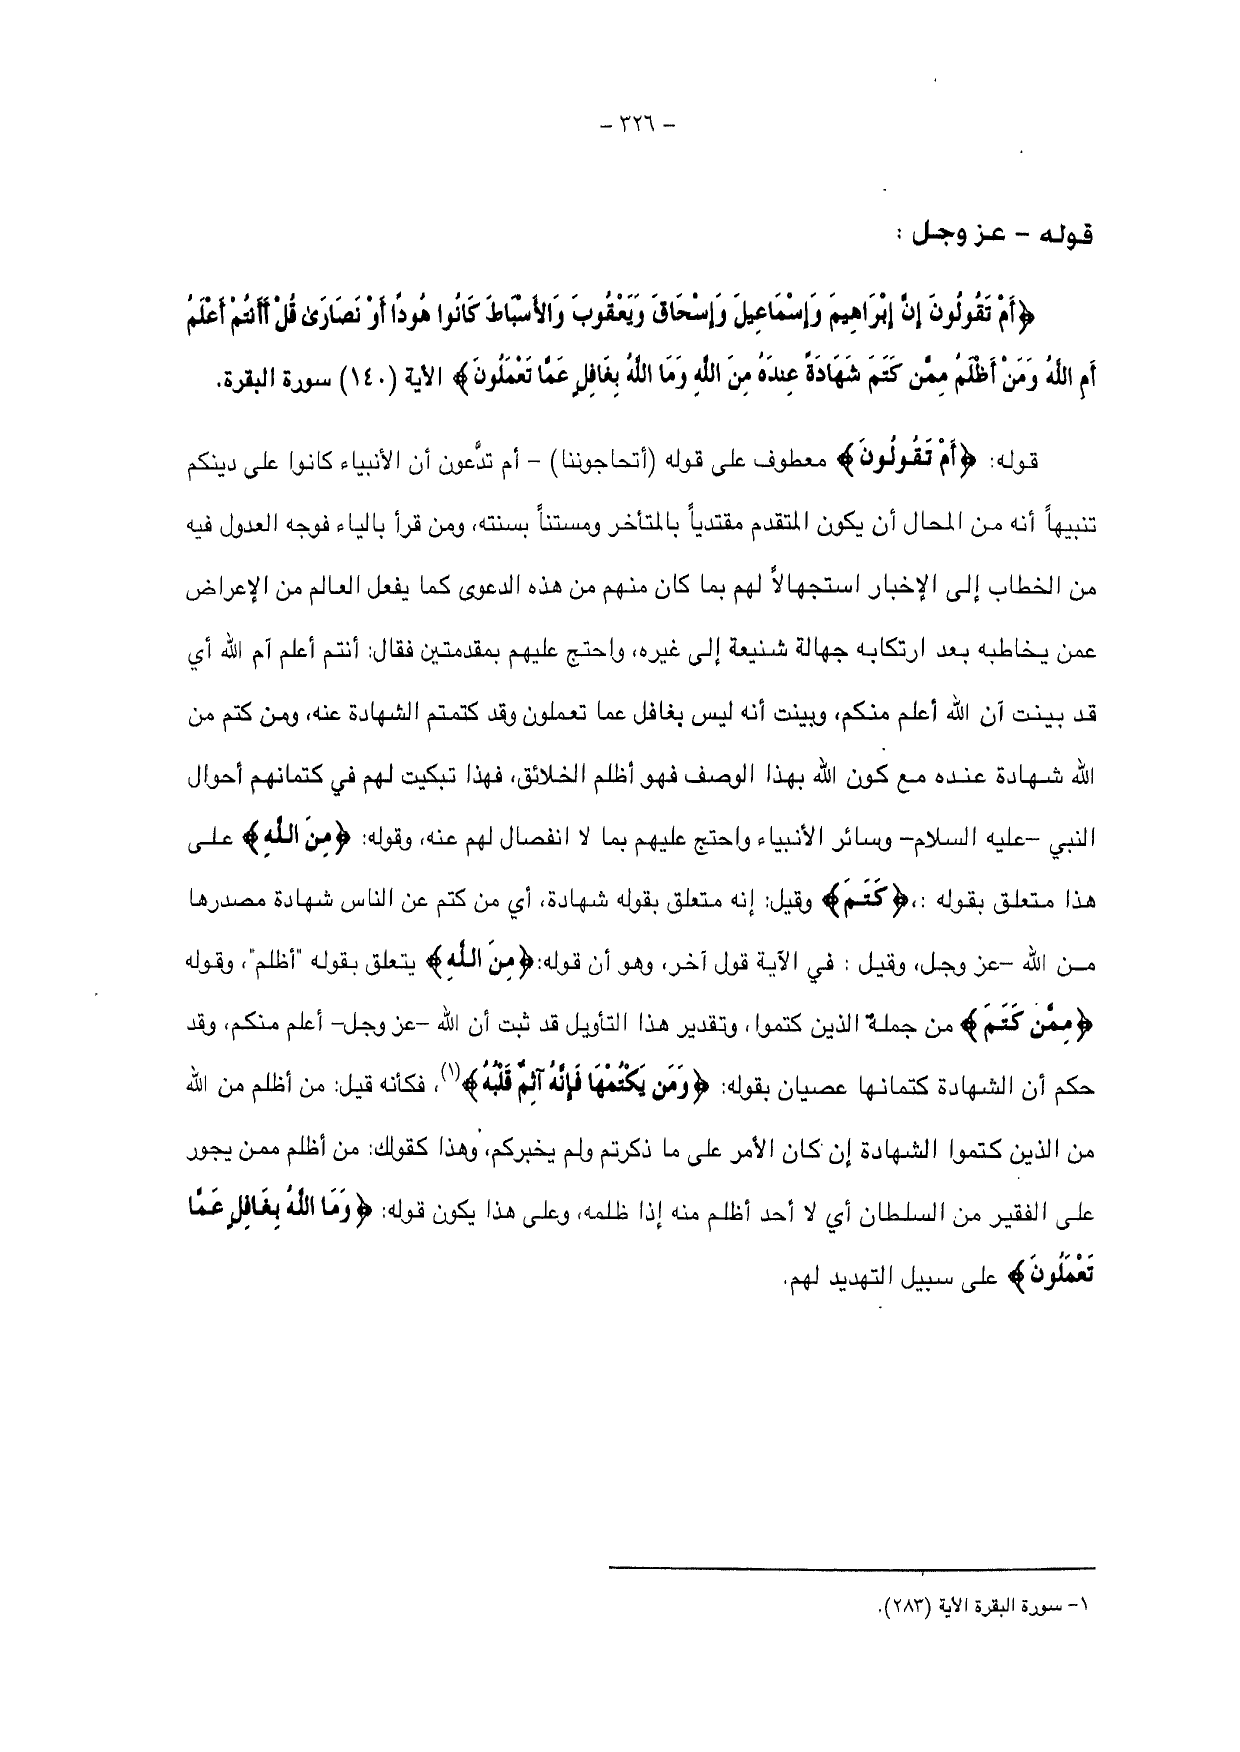 - ٣٢٦ -
قوله - عز وجل :
﴿أَمْ تَقُولُونَ إِنَّ إِبْرَاهِيمَ وَإِسْمَاعِيلَ وَإِسْحَاقَ وَيَعْقُوبَ وَالأَسْبَاطَ كَانُوا هُودًا أَوْ نَصَارَىٰ قُلْ أَأَنتُمْ أَعْلَمُ
أَمِ اللَّهُ وَمَنْ أَظْلَمُ مِمَّن كَتَمَ شَهَادَةً عِندَهُ مِنَ اللَّهِ وَمَا اللَّهُ بِغَافِلٍ عَمَّا تَعْمَلُونَ﴾ الآية (١٤٠) سورة البقرة.
قوله: ﴿أَمْ تَقُولُونَ﴾ معطوف على قوله (أتحاجوننا) - أم تدَّعون أن الأنبياء كانوا على دينكم
تنبيهاً أنه من المحال أن يكون المتقدم مقتدياً بالمتأخر ومستناً بسنته، ومن قرأ بالياء فوجه العدول فيه
من الخطاب إلى الإخبار استجهالاً لهم بما كان منهم من هذه الدعوى كما يفعل العالم من الإعراض
عمن يخاطبه بعد ارتكابه جهالة شنيعة إلى غيره، واحتج عليهم بمقدمتين فقال: أنتم أعلم آم الله أي
قد بينت آن الله أعلم منكم، وبينت أنه ليس بغافل عما تعملون وقد كتمتم الشهادة عنه، ومن كتم من
الله شهادة عنده مع كون الله بهذا الوصف فهو أظلم الخلائق، فهذا تبكيت لهم في كتمانهم أحوال
النبي -عليه السلام- وسائر الأنبياء واحتج عليهم بما لا انفصال لهم عنه، وقوله: ﴿مِنَ اللَّهِ﴾ على
هذا متعلق بقوله :،﴿كَتَمَ﴾ وقيل: إنه متعلق بقوله شهادة، أي من كتم عن الناس شهادة مصدرها
من الله -عز وجل، وقيل : في الآية قول آخر، وهو أن قوله:﴿مِنَ اللَّهِ﴾ يتعلق بقوله "أظلم"، وقوله
﴿مِمَّن كَتَمَ﴾ من جملة الذين كتموا، وتقدير هذا التأويل قد ثبت أن الله -عز وجل- أعلم منكم، وقد
حكم أن الشهادة كتمانها عصيان بقوله: ﴿وَمَن يَكْتُمْهَا فَإِنَّهُ آثِمٌ قَلْبُهُ﴾(١)، فكأنه قيل: من أظلم من الله
من الذين كتموا الشهادة إن كان الأمر على ما ذكرتم ولم يخبركم، وهذا كقولك: من أظلم ممن يجور
على الفقير من السلطان أي لا أحد أظلم منه إذا ظلمه، وعلى هذا يكون قوله: ﴿وَمَا اللَّهُ بِغَافِلٍ عَمَّا
تَعْمَلُونَ﴾ على سبيل التهديد لهم.
١- سورة البقرة الآية (٢٨٣).